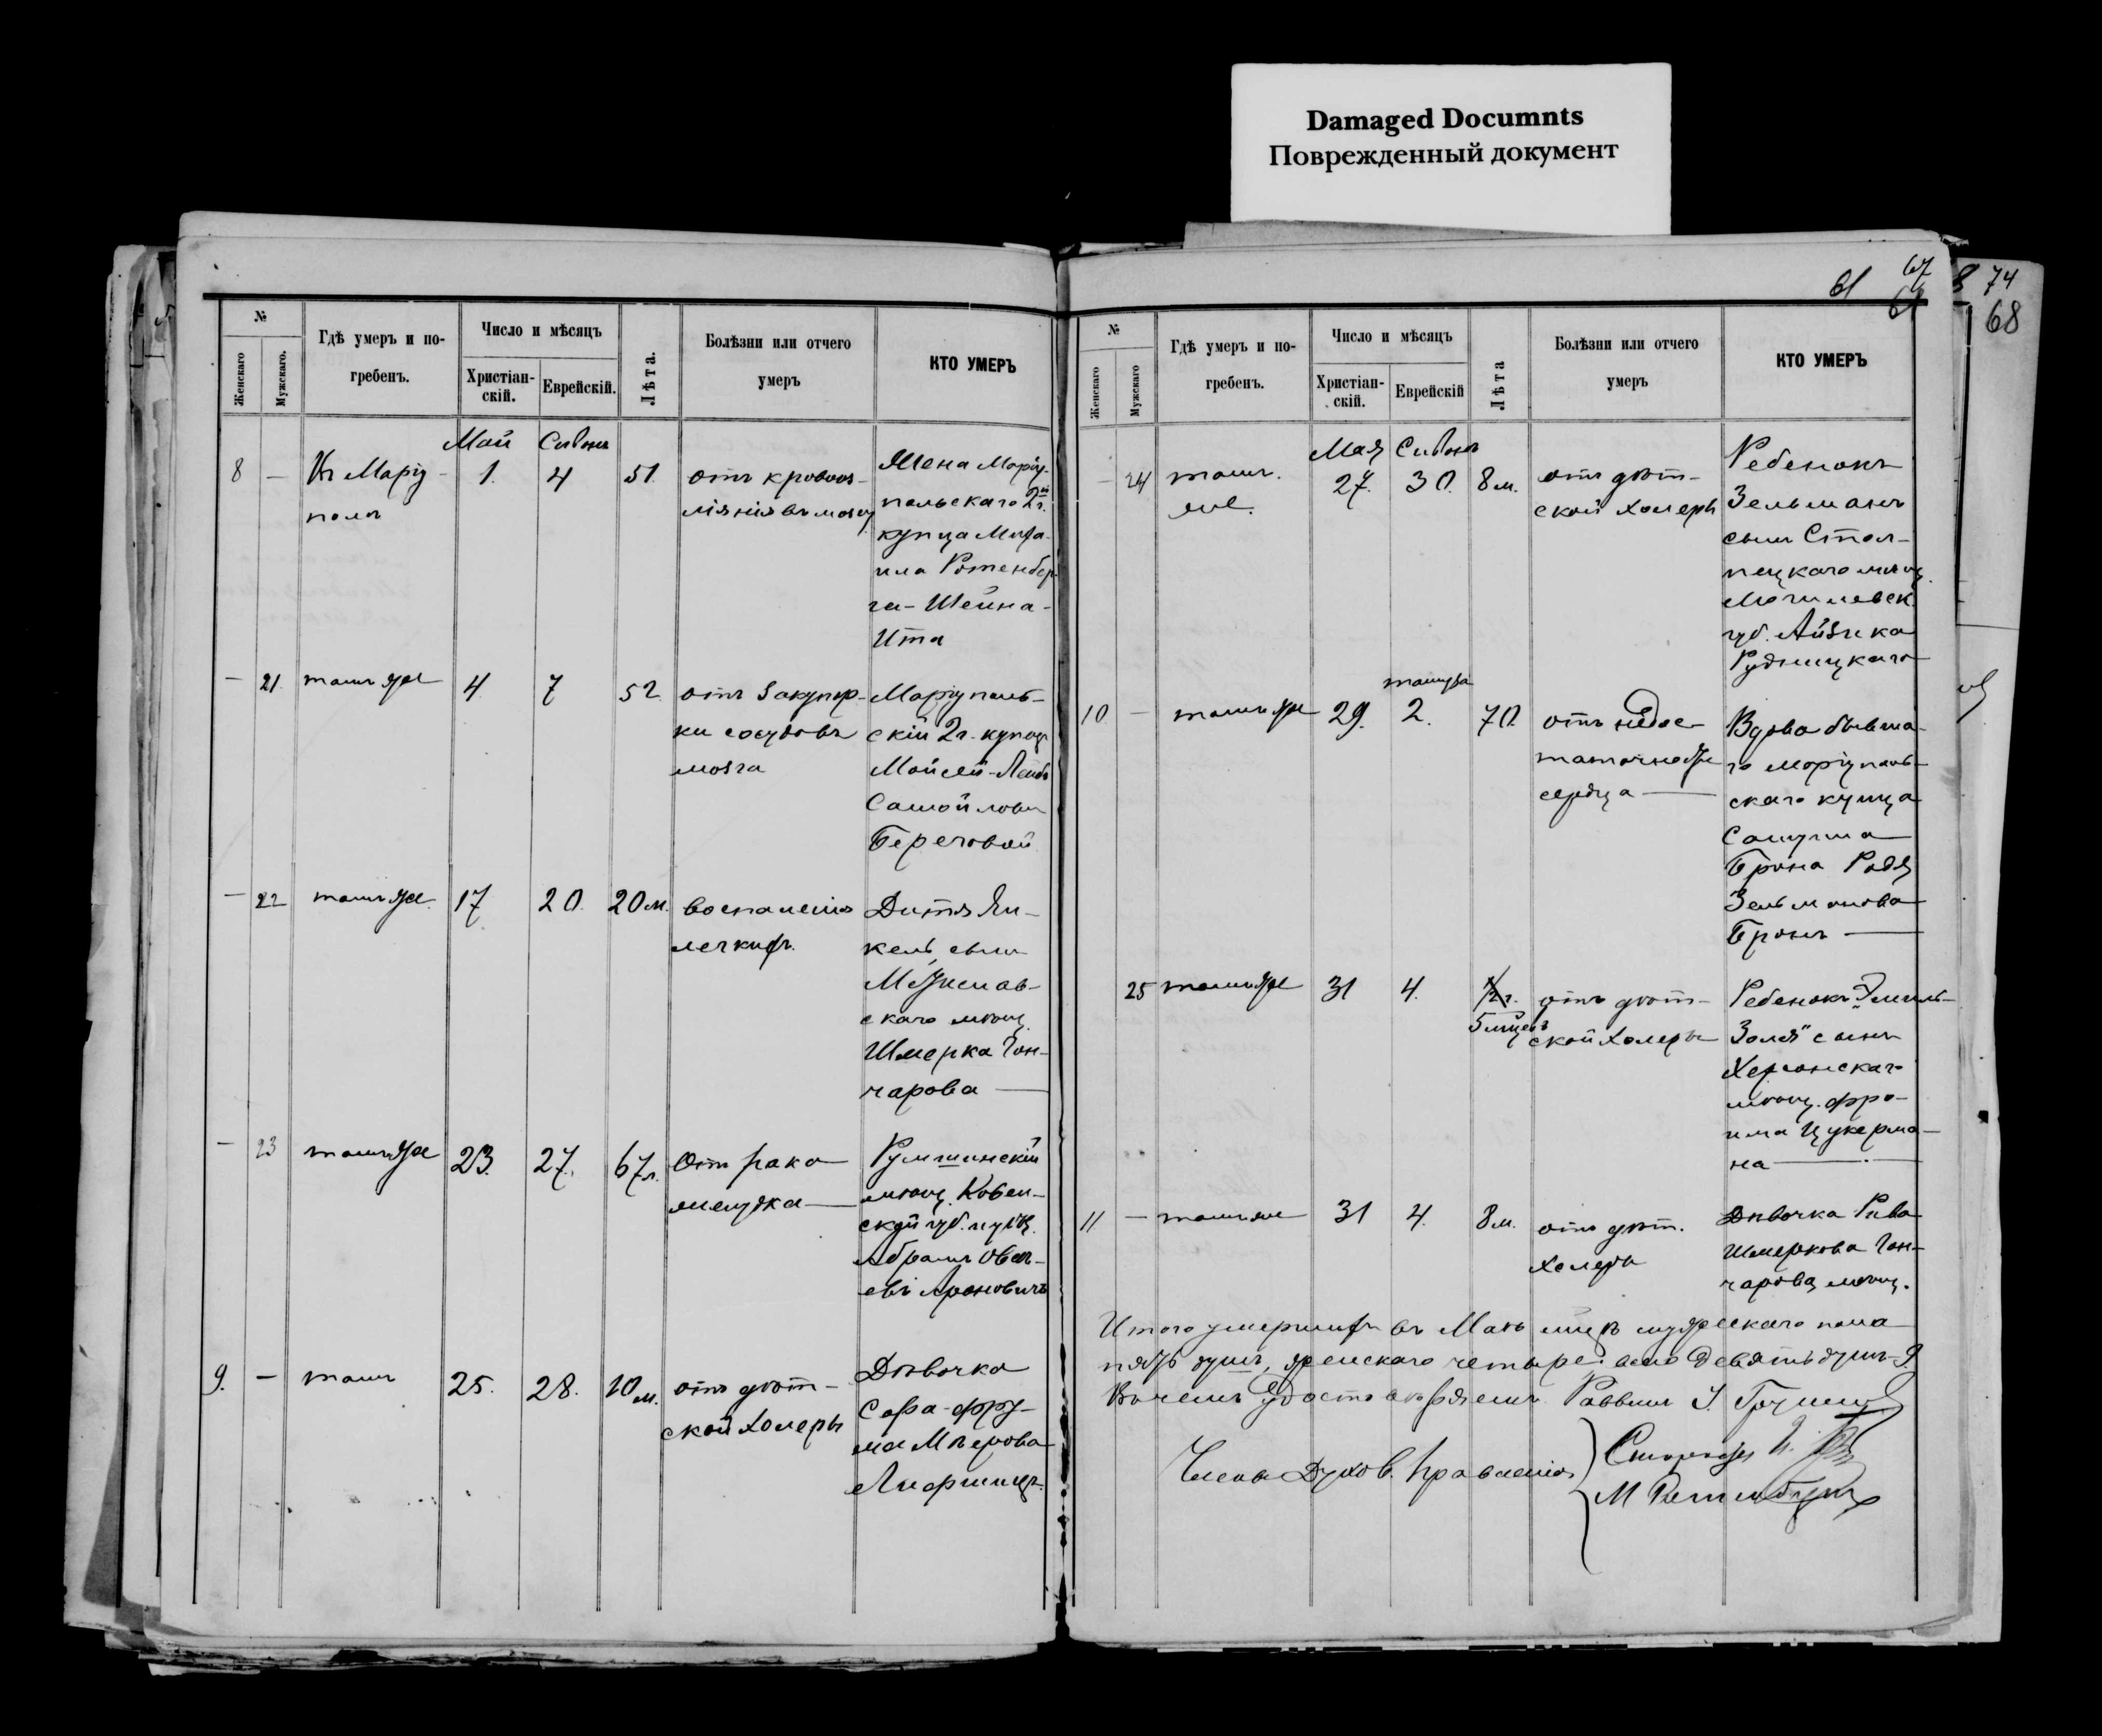 Damaged Documnts
Поврежденный документ
61
67
74
68
№
Женскаго
Мужскаго.
Гдѣ умеръ и по-
гребенъ.
Число и мѣсяцъ
Христіан-
скій.
Еврейскій.
Лѣта.
Болѣзни или отчего
умеръ
КТО УМЕРЪ
Май Сивонъ
8 — Въ Маріу-
поль
1. 4 51.
отъ кровоиз-
ліянія въ мозгу
Жена Маріу-
польскаго 2й г.
купца Миха-
ила Ротенбер-
га - Шейна-
Ита
— 21. тамъ же 4. 7 52
отъ закупор-
ки сосудовъ
мозга
Маріуполь-
скій 2 г. купец
Мойсей-Лейб
Самойлов
Береговой
— 22 тамъ же. 17 20. 20 м.
воспаленія
легкихъ.
Дитя Ян-
кель, сынъ
скаго мѣщ.
Шмерка Гон-
чарова —
— 23 тамъ же 23. 27. 67 л.
Отъ рака
желудка —
Румшинскій
мѣщ. Ковен-
ской губ.
Абрамъ
Ароновичъ
9. — тамъ 25. 28. 10 м.
отъ дѣт-
ской холеры
Дѣвочка
Сора-Фру-
ма Мѣерова
Лифшицъ.
№
Женскаго
Мужскаго
Гдѣ умеръ и по-
гребенъ.
Число и мѣсяцъ
Христіан-
скій.
Еврейскій
Лѣта
Болѣзни или отчего
умеръ
КТО УМЕРЪ
Мая Сивонъ
— 24 тамъ
же.
27. 30. 8 м.
отъ дѣт-
ской холеры
Ребенокъ
Зельманъ
сынъ Стол-
пецкаго мѣщ.
Могилевск.
губ. Айзика
Рудницкаго
тамуза
10 — тамъ же 29. 2. 70
отъ недос-
таточности
сердца —
Вдова бывша-
го маріуполь-
скаго купца
Самуила
Брона Родя
Зельманова
Бронъ —
25 тамъ же 31 4. 1/2 г.
5 мѣцевъ
отъ дѣт-
ской холеры
Ребенокъ „Эмиль-
Золя" сынъ
Херсонскаго
мѣщ. Фро-
има Цукерма-
на —
11 — тамъ же 31 4. 8 м.
отъ дѣт.
холеры
Дѣвочка Рива
Шмеркова Гон-
чарова, мѣщ.
Итого умершихъ въ Маѣ мцѣ мужескаго пола
пять душъ, женскаго четыре. всего девять душъ - 9.
Въ чемъ удостовѣряемъ Раввинъ
Члены Духов. Правленія
М Ротенбергъ